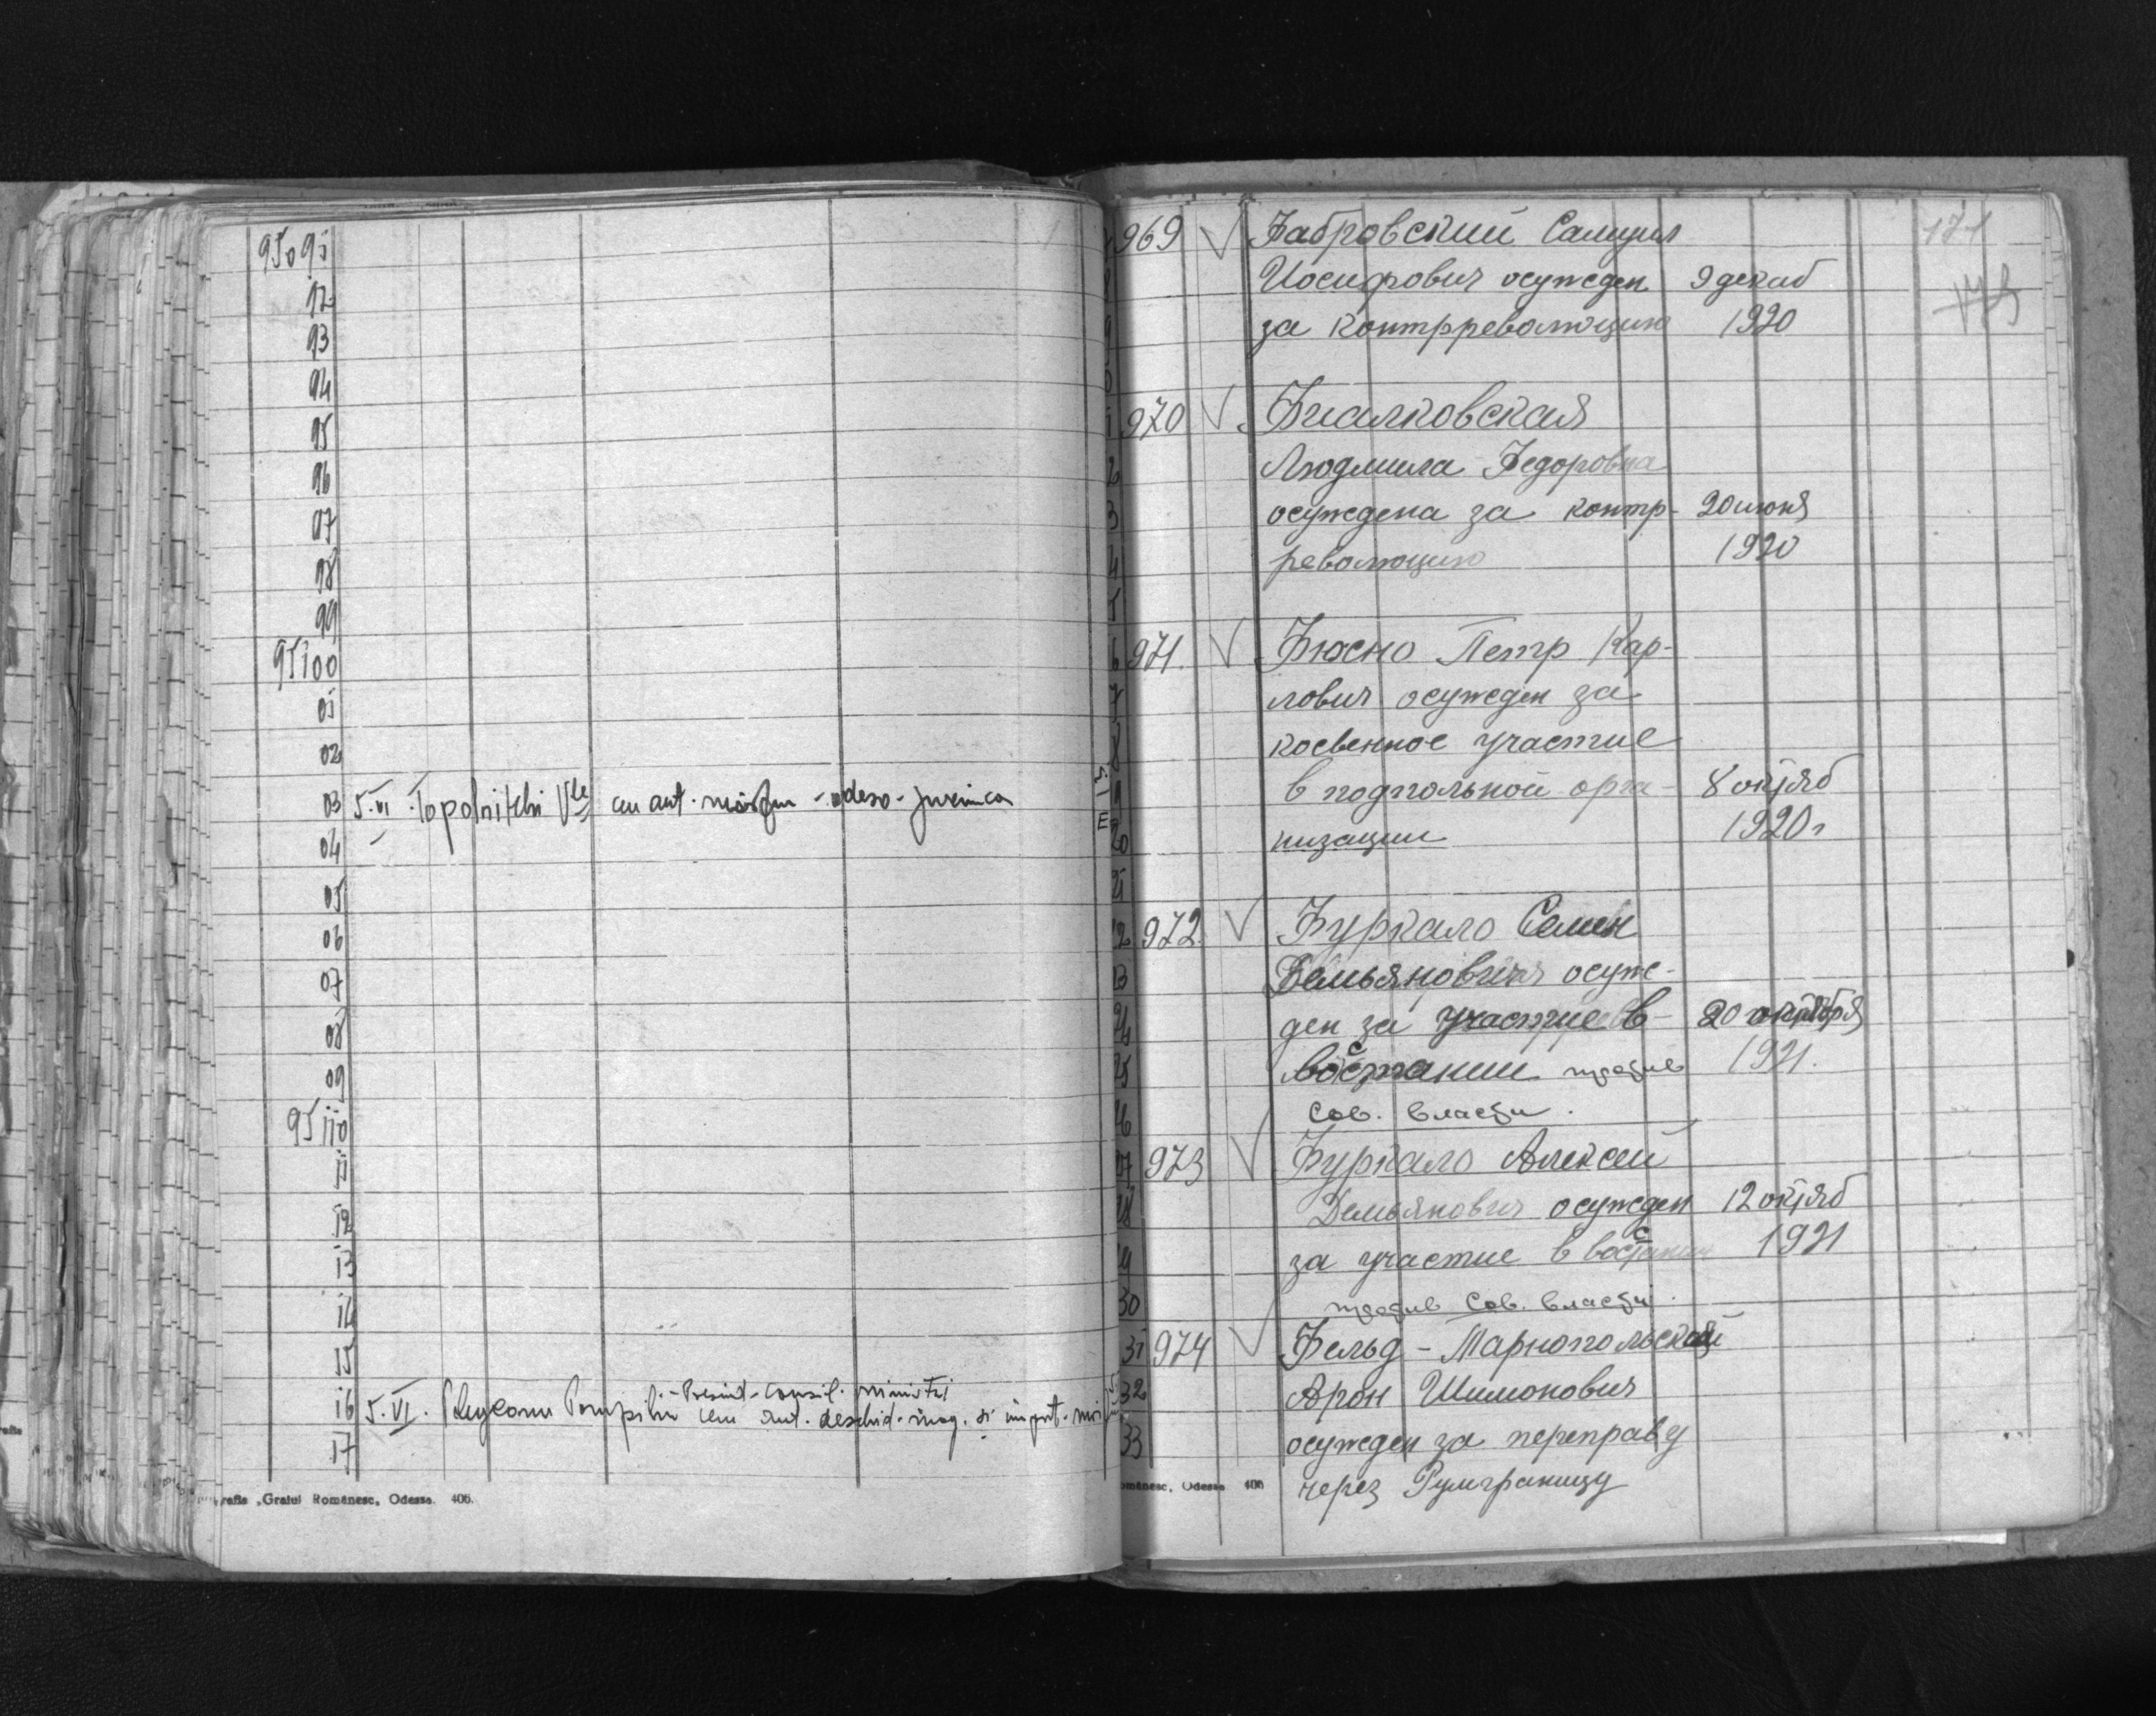 95095
92
93
94
95
96
97
98
99
95100
01
02
03 5.VI Topolnitchi cu aut.
04
05
06
07
08
09
95110
11
12
13
14
15
- Presid - Consil. miniştri
16 5.VI. cu aut. deschid. mag. si import.
17
„Graiul Românesc, Odessa. 406.
171
969 √ Бабровский Самуил
Иосифович осужден 9 декаб
за контрреволюцию 1920
970 √ Биалковская
Людмила Федоровна
осуждена за контр- 20 июня
революцию 1920
971. √ Бюхно Петр Кар-
лович осужден за
косвенное участие
в подпольной орга- 8 октяб
низации 1920 г
972. √ Буркало Семен
Демьянович осуж-
ден за участие в 20 октября
восстании против 1921.
Сов. власти.
973 √ Буркало Алексей
Демьянович осужден 12 октяб
за участие в восстании 1921
против Сов. власти.
974 √ Бельд - Тарнопольский
Арон Шимонович
осужден за переправу
через Румграницу
омânesc, Odessa 406